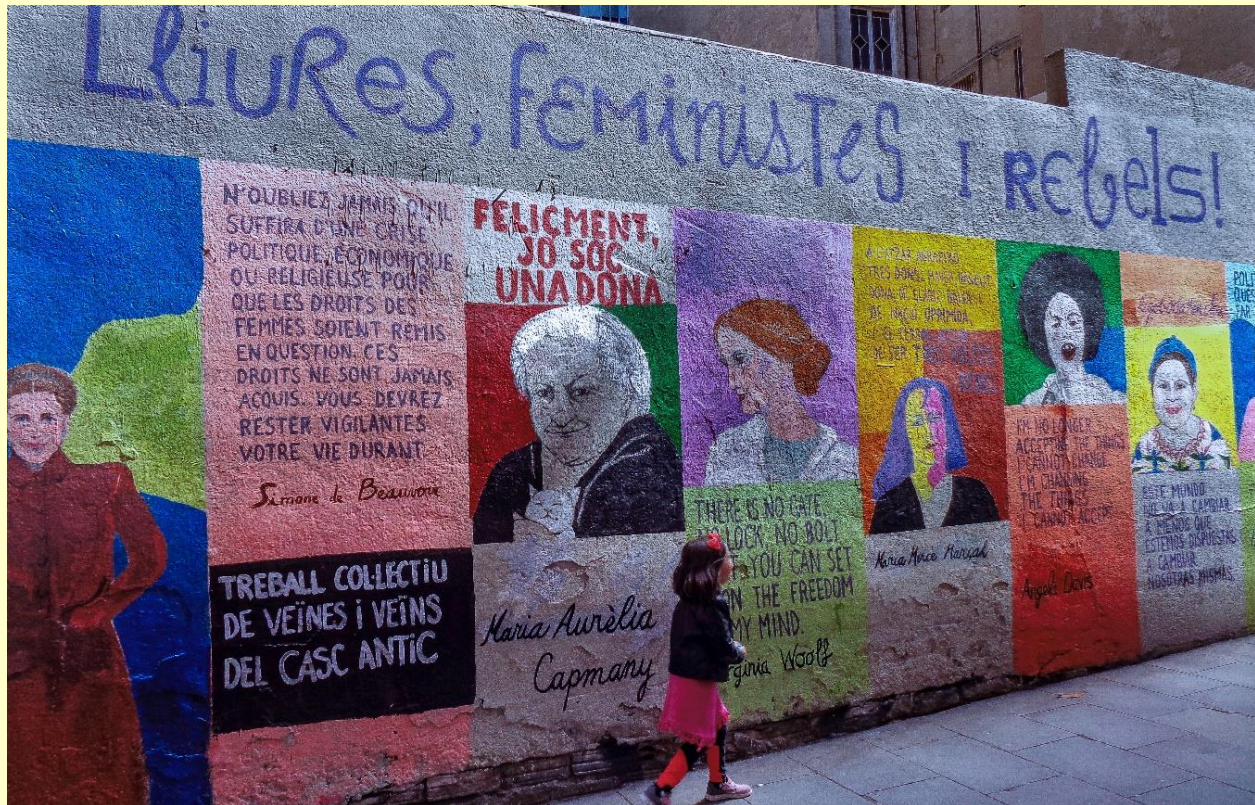 Lliures, feministes i rebels!
N'OUBLIEZ JAMAIS QU'IL
SUFFIRA D'UNE CRISE
POLITIQUE, ÉCONOMIQUE
OU RELIGIEUSE POUR
QUE LES DROITS DES
FEMMES SOIENT REMIS
EN QUESTION. CES
DROITS NE SONT JAMAIS
ACQUIS. VOUS DEVREZ
RESTER VIGILANTES
VOTRE VIE DURANT.
Simone de Beauvoir
TREBALL COL·LECTIU
DE VEÏNES I VEÏNS
DEL CASC ANTIC
FELIÇMENT,
JO SÓC
UNA DONA
Maria Aurèlia
Capmany
THERE IS NO GATE
LOCK, NO BOLT
YOU CAN SET
THE FREEDOM
MY MIND.
Woolf
TRES DONS:
DONA, DE CLASSE BAIXA I
DE NACIÓ OPRIMIDA.
Maria Mercè Marçal
I'M NO LONGER
ACCEPTING THE THINGS
I CANNOT CHANGE
I'M CHANGING
THE THINGS
I CANNOT ACCEPT.
Angela Davis
ESTE MUNDO
NO VA A CAMBIAR
A MENOS QUE
ESTEMOS DISPUESTAS
A CAMBIAR
NOSOTRAS MISMAS.